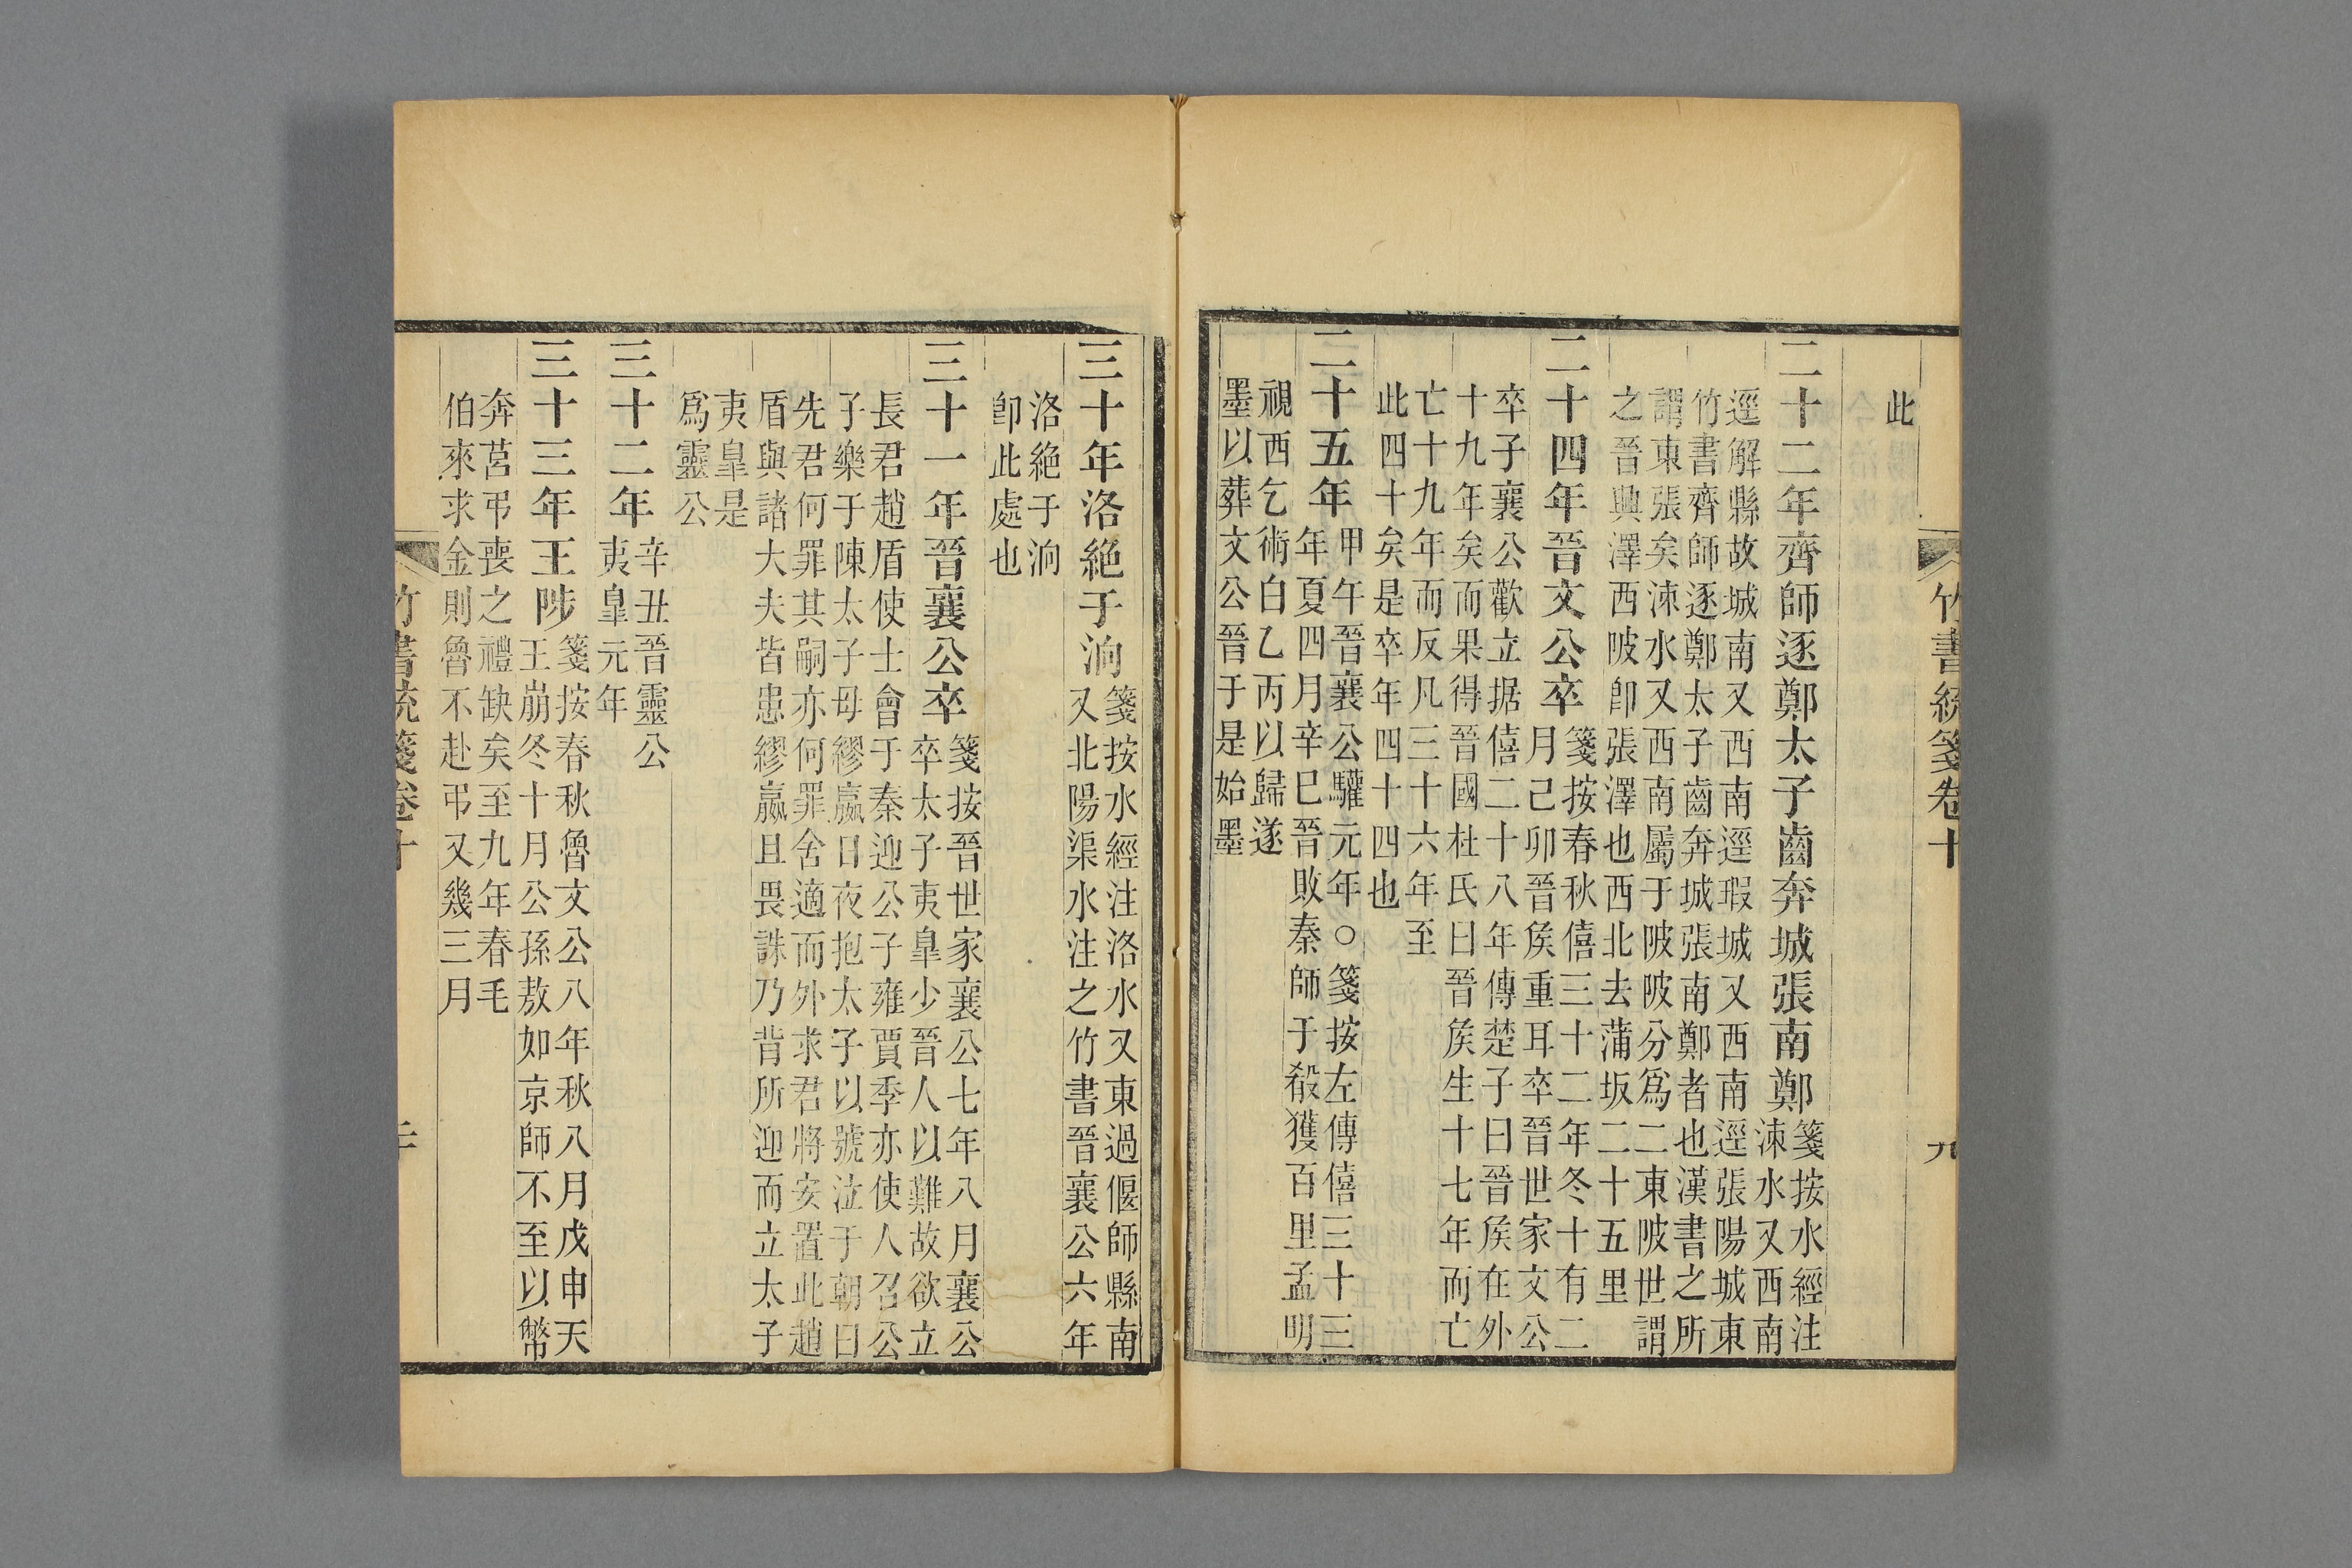 竹書統箋卷十
九
此
二十二年齊師逐鄭太子齒奔城張南鄭箋按水經注
涑水又西南
逕解縣故城南又西南逕瑕城又西南逕張陽城東
竹書齊師逐鄭太子齒奔城張南鄭者也漢書之所
謂東張矣涑水又西南屬于陂陂分爲二東陂世謂
之晉興澤西陂卽張澤也西北去蒲坂二十五里
二十四年晉文公卒箋按春秋僖三十二年冬十有二
月己卯晉矦重耳卒晉世家文公
卒子襄公歡立据僖二十八年傳楚子曰晉矦在外
十九年矣而果得晉國杜氏曰晉矦生十七年而亡
亡十九年而反凡三十六年至
此四十矣是卒年四十四也
二十五年甲午晉襄公驩元年○箋按左傳僖三十三
年夏四月辛巳晉敗秦師于殽獲百里孟明
視西乞術白乙丙以歸遂
墨以葬文公晉于是始墨
三十年洛絶于泂箋按水經注洛水又東過偃師縣南
又北陽渠水注之竹書晉襄公六年
洛絶于泂
卽此處也
三十一年晉襄公卒箋按晉世家襄公七年八月襄公
卒太子夷皐少晉人以難故欲立
長君趙盾使士會于秦迎公子雍賈季亦使人召公
子樂于陳太子母繆嬴日夜抱太子以號泣于朝曰
先君何罪其嗣亦何罪舍適而外求君將安置此趙
盾與諸大夫皆患繆嬴且畏誅乃背所迎而立太子
夷皐是
爲靈公
三十二年辛丑晉靈公
夷皐元年
三十三年王陟箋按春秋魯文公八年秋八月戊申天
王崩冬十月公孫敖如京師不至以幣
奔莒弔喪之禮缺矣至九年春毛
伯來求金則魯不赴弔又幾三月
竹書統箋卷十